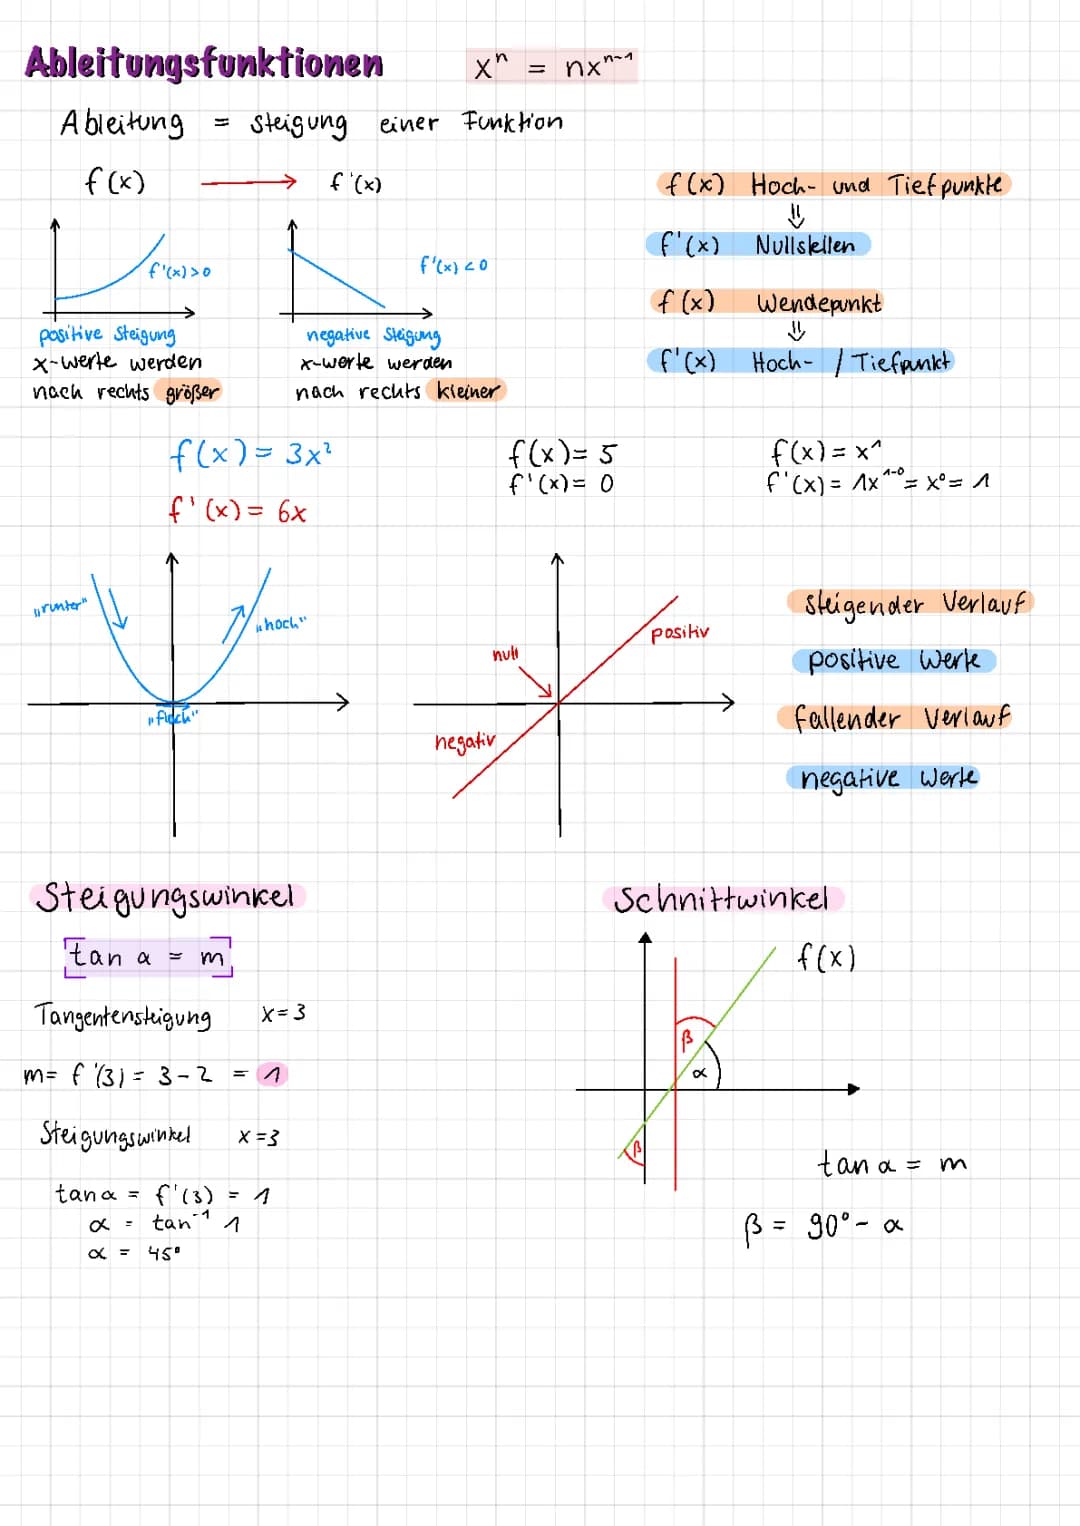 Ableitungsfunktionen
xⁿ = nxⁿ⁻¹
Ableitung = Steigung einer Funktion
f(x) → f'(x)
f'(x)>0
f'(x)<0
positive Steigung
x-werte werden
nach rechts größer
negative Steigung
x-werte werden
nach rechts kleiner
f(x) Hoch- und Tiefpunkte
⇓
f'(x) Nullstellen
f(x) Wendepunkt
⇓
f'(x) Hoch- / Tiefpunkt
f(x) = 3x²
f'(x) = 6x
f(x) = 5
f'(x) = 0
f(x) = x¹
f'(x) = 1x¹⁻⁰ = x⁰ = 1
„runter"
„hoch"
„flach"
null
positiv
negativ
steigender Verlauf
positive Werte
fallender Verlauf
negative Werte
Steigungswinkel
tan α = m
Tangentensteigung x=3
m = f'(3) = 3-2 = 1
Steigungswinkel x=3
tan α = f'(3) = 1
α = tan⁻¹ 1
α = 45°
Schnittwinkel
f(x)
β
α
β
tan α = m
β = 90° - α